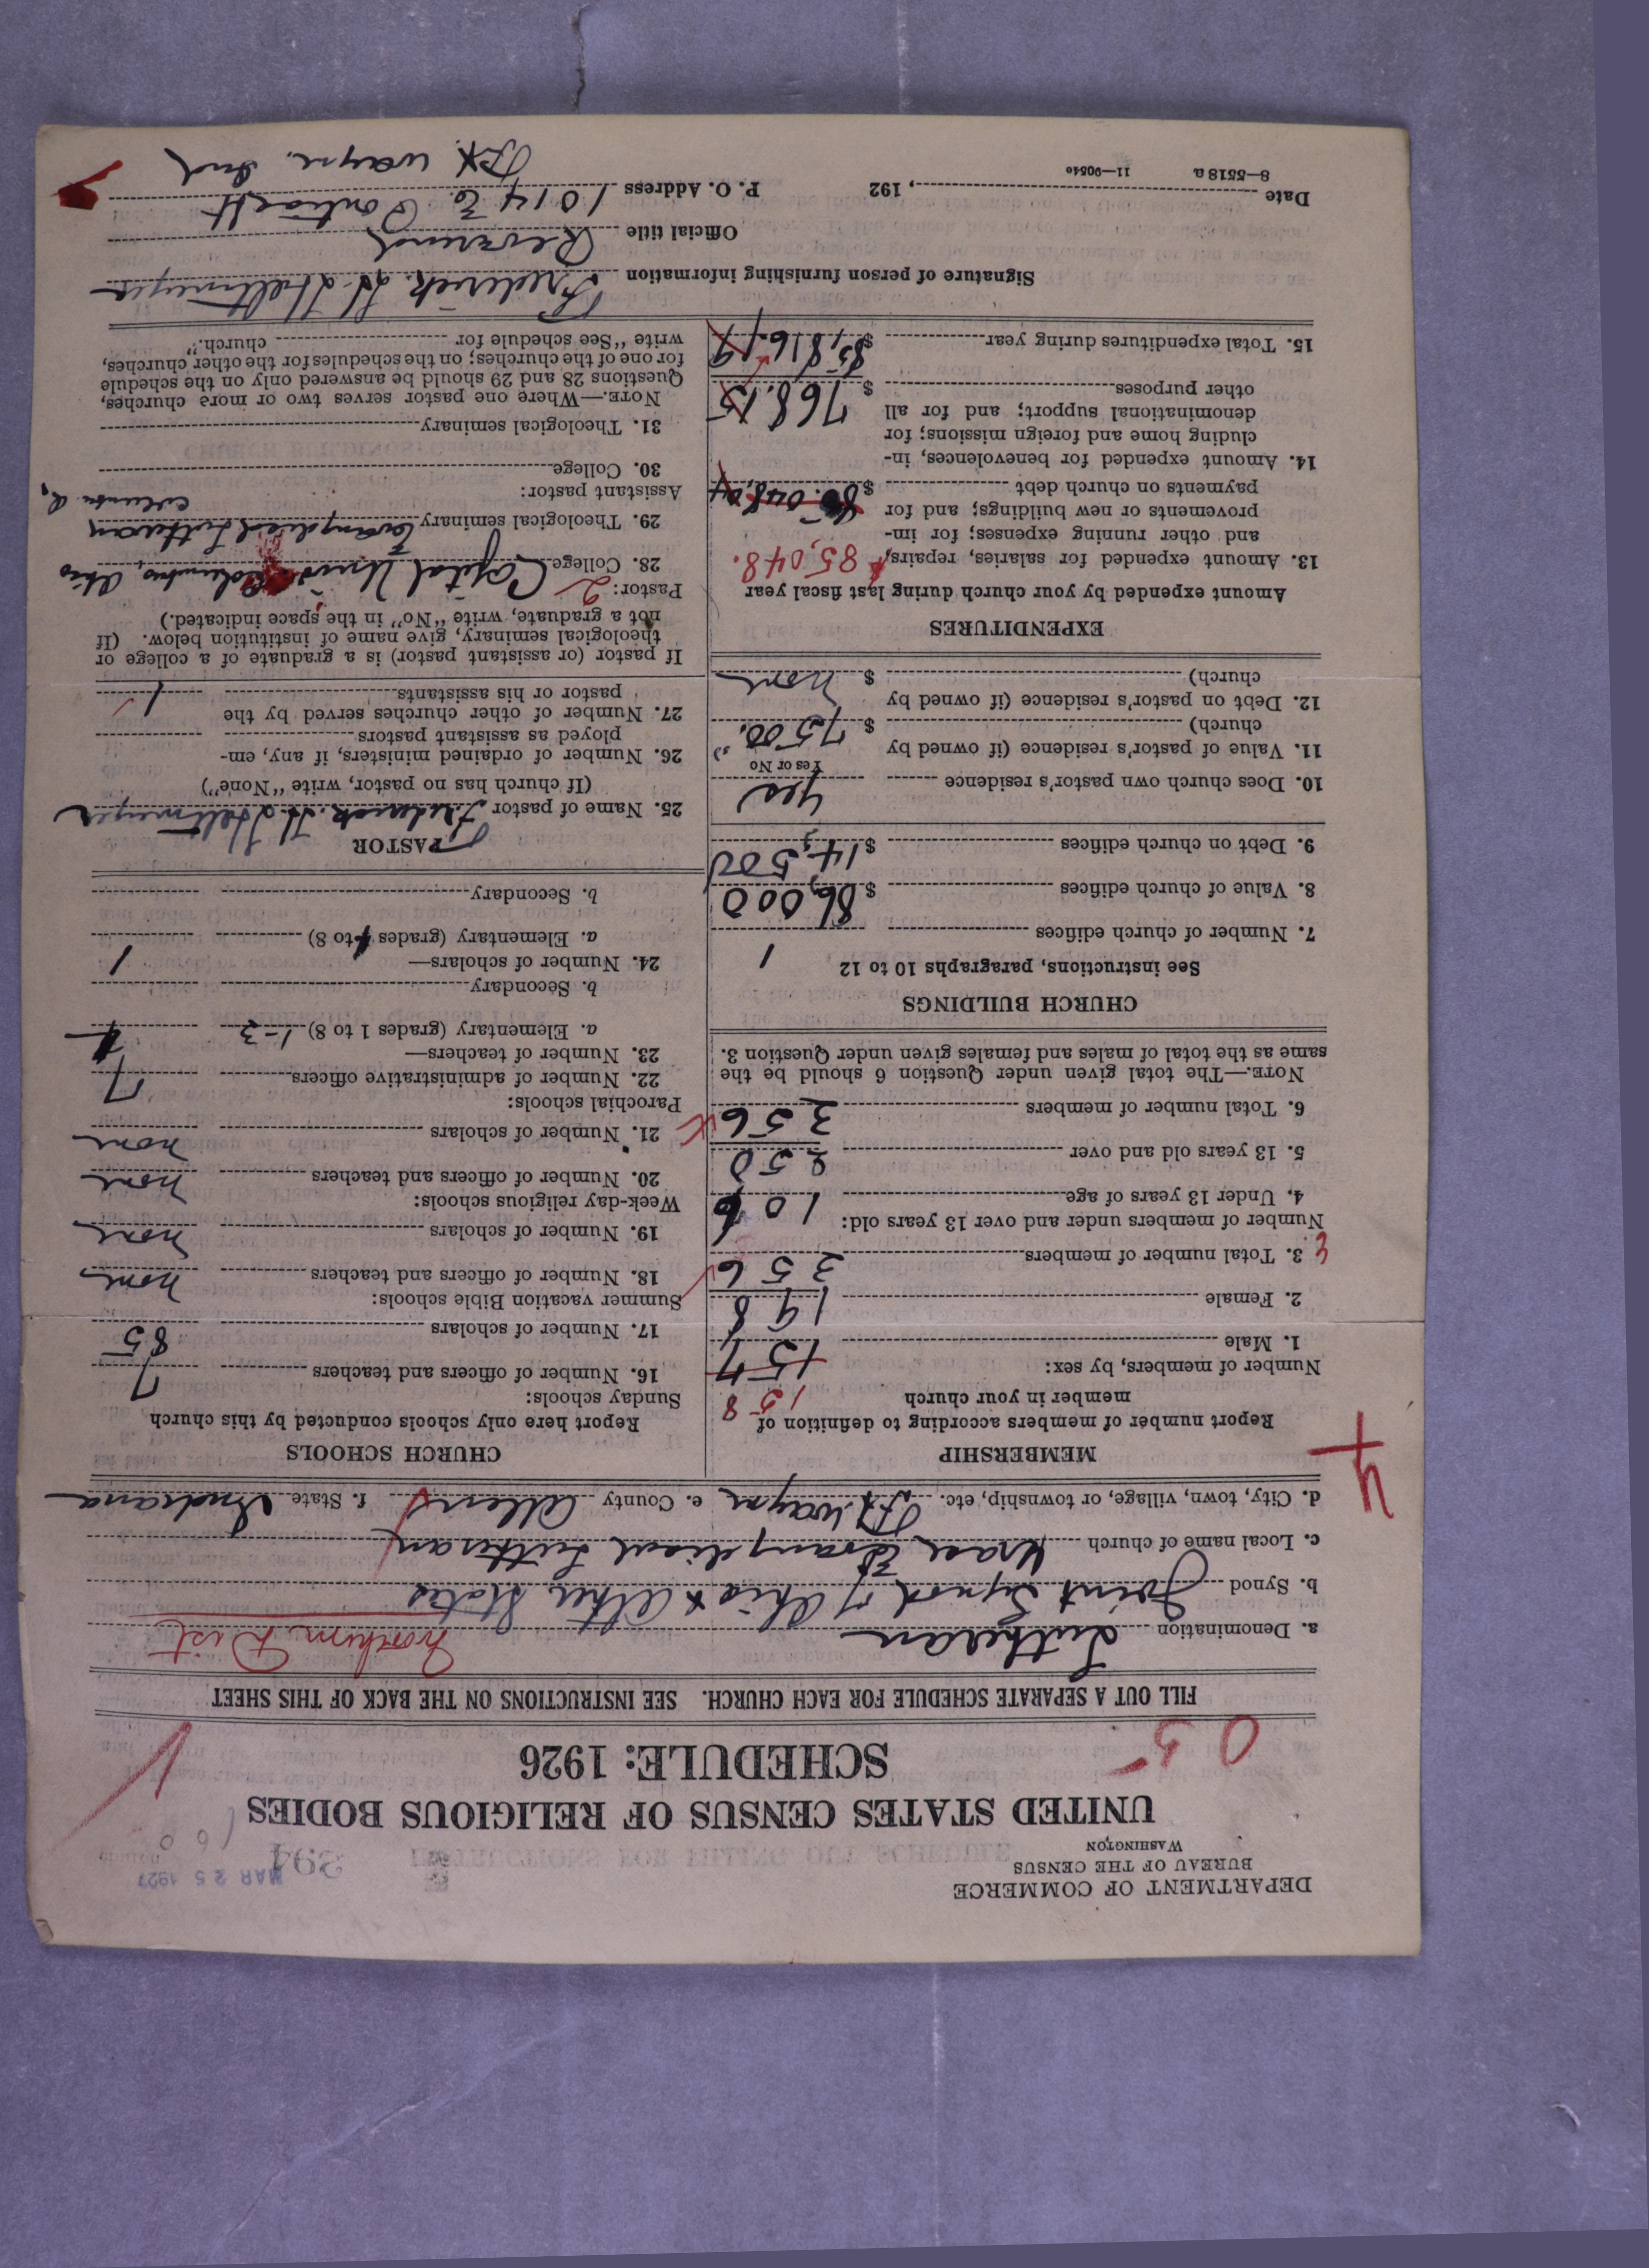 DEPARTMENT OF COMMERCE
BUREAU OF THE CENSUS
WASHINGTON
394
MAR 25 1927
160
UNITED STATES CENSUS OF RELIGIOUS BODIES
SCHEDULE: 1926
05
FILL OUT A SEPARATE SCHEDULE FOR EACH CHURCH. SEE INSTRUCTIONS ON THE BACK OF THIS SHEET
a. Denomination Lutheran
Northern Dist
b. Synod Joint Synod of Ohio & Other States
c. Local name of church Grace Evangelical Lutheran
d. City, town, village, or township, etc. Ft. Wayne e. County Allen f. State Indiana
4
MEMBERSHIP
Report number of members according to definition of
member in your church
158
Number of members, by sex:
1. Male 157
2. Female 198
3. Total number of members 356
Number of members under and over 13 years old:
4. Under 13 years of age 106
5. 13 years old and over 250
6. Total number of members 356
NOTE.—The total given under Question 6 should be the
same as the total of males and females given under Question 3.
CHURCH BUILDINGS
See instructions, paragraphs 10 to 12
7. Number of church edifices 1
8. Value of church edifices $ 86,000
9. Debt on church edifices $ 14,500
10. Does church own pastor's residence yes
Yes or No
11. Value of pastor's residence (if owned by
church) $ 7500.
12. Debt on pastor's residence (if owned by
church) $ none
EXPENDITURES
Amount expended by your church during last fiscal year
13. Amount expended for salaries, repairs, 85,048.
and other running expenses; for im-
provements or new buildings; and for
payments on church debt $
14. Amount expended for benevolences, in-
cluding home and foreign missions; for
denominational support; and for all
other purposes $ 768.15
15. Total expenditures during year $ 85,816.19
CHURCH SCHOOLS
Report here only schools conducted by this church
Sunday schools:
16. Number of officers and teachers 7
17. Number of scholars 85
Summer vacation Bible schools:
18. Number of officers and teachers none
19. Number of scholars none
Week-day religious schools:
20. Number of officers and teachers none
21. Number of scholars none
Parochial schools:
22. Number of administrative officers 7
23. Number of teachers—
a. Elementary (grades 1 to 8) 1-3
b. Secondary
24. Number of scholars— 1
a. Elementary (grades to 8)
b. Secondary
PASTOR
25. Name of pastor Frederick. H. Heltmeyer
(If church has no pastor, write "None")
26. Number of ordained ministers, if any, em-
ployed as assistant pastors
27. Number of other churches served by the
pastor or his assistants 1
If pastor (or assistant pastor) is a graduate of a college or
theological seminary, give name of institution below. (If
not a graduate, write "No" in the space indicated.)
Pastor: 2
28. College Capital Univ. Columbus, Ohio
29. Theological seminary Evangelical Lutheran
Columbus O,
Assistant pastor:
30. College
31. Theological seminary
NOTE.—Where one pastor serves two or more churches,
Questions 28 and 29 should be answered only on the schedule
for one of the churches; on the schedules for the other churches,
write "See schedule for church."
Signature of person furnishing information Frederick. H. Heltmeyer
Official title Reverend
Date , 192 P. O. Address 1014 E. Pontiac St
Ft. Wayne. Ind
8—5518 a 11—90540